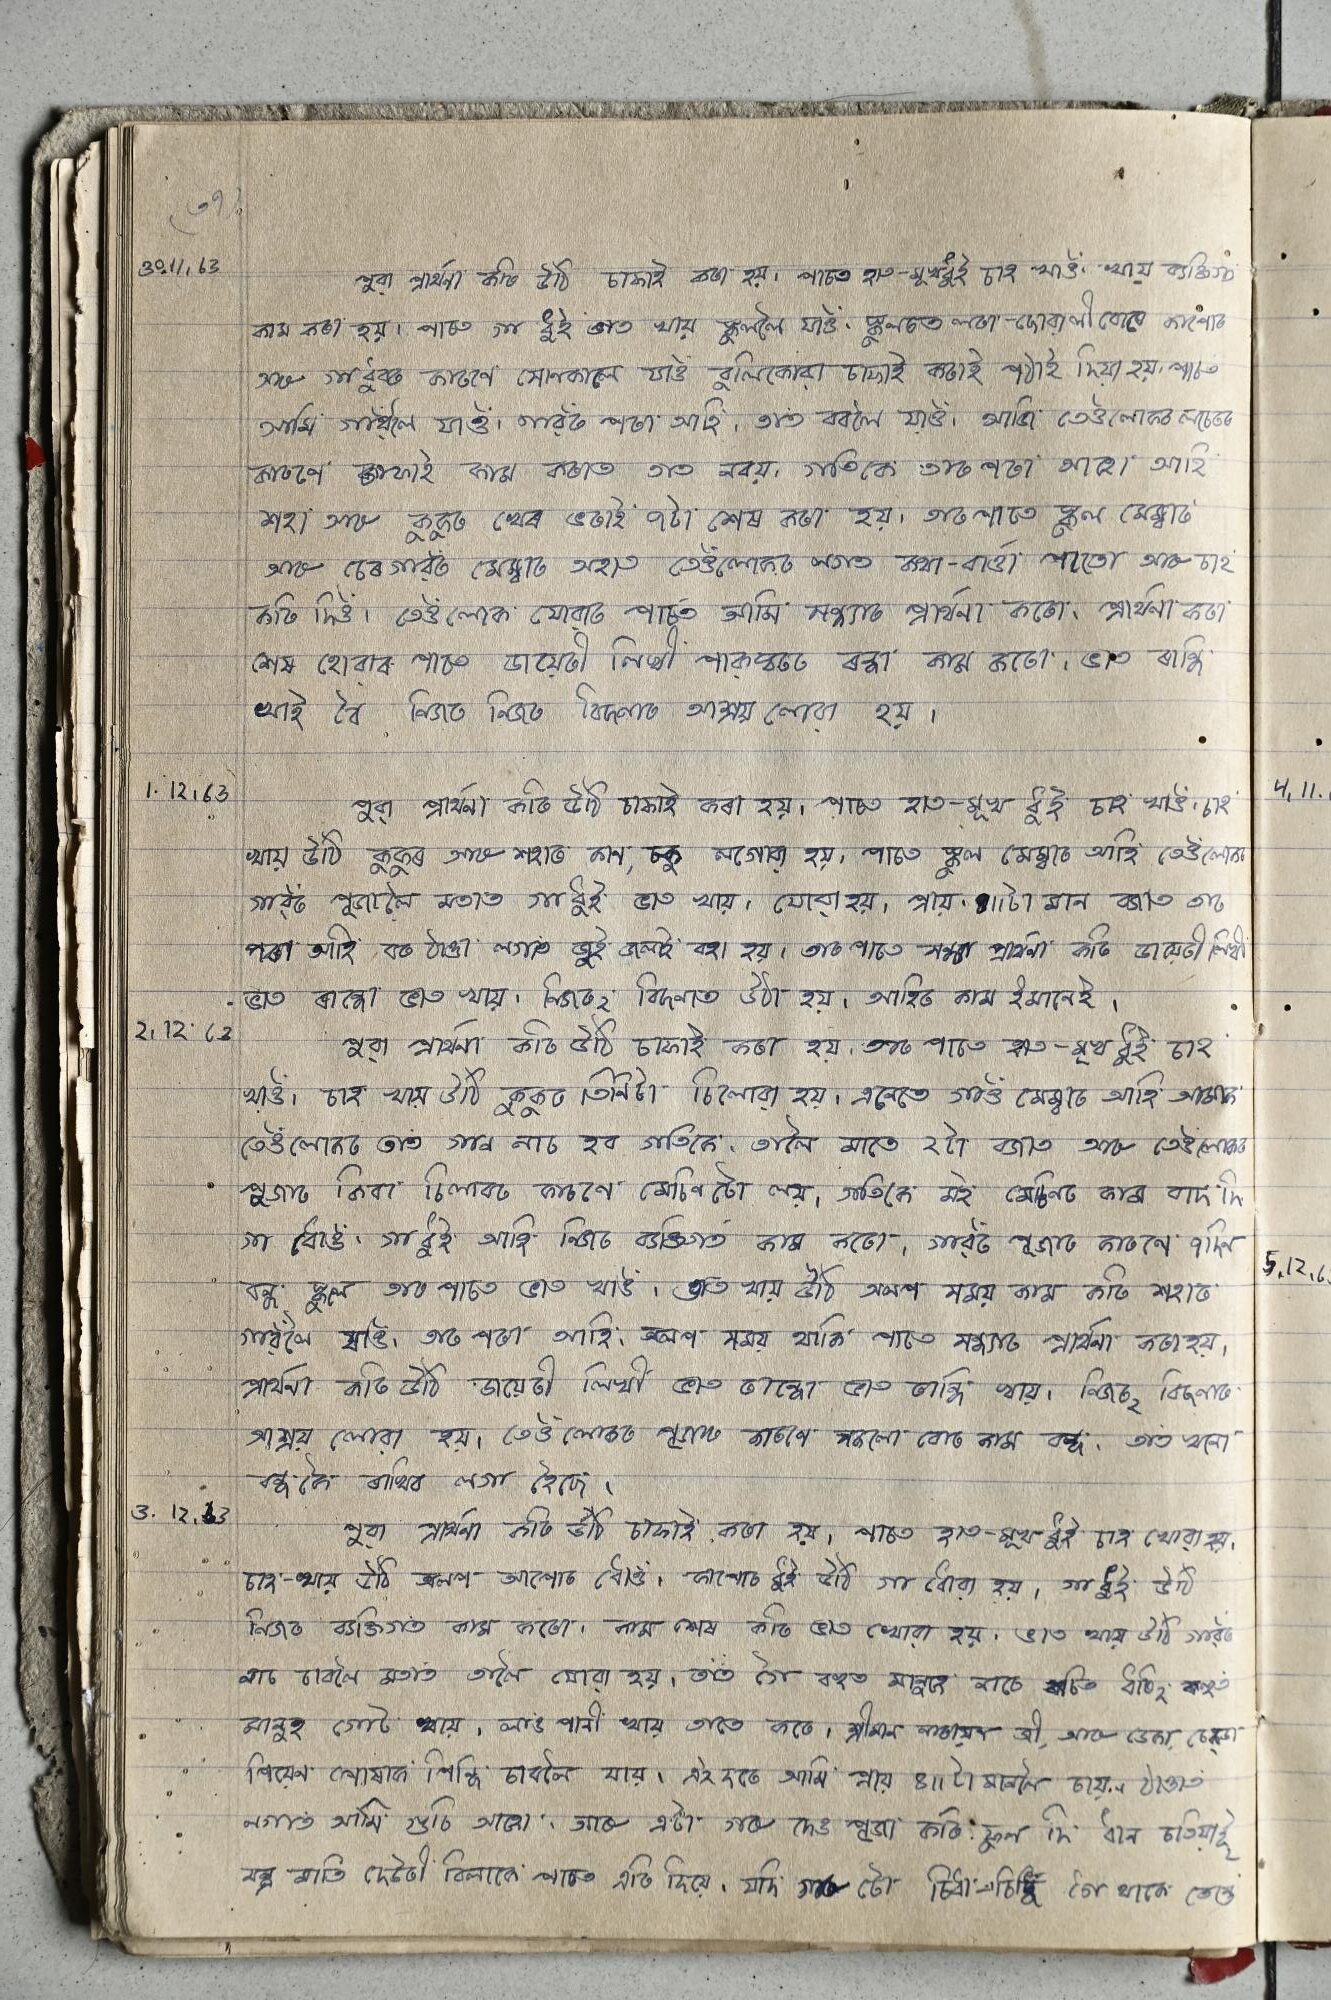 (৩৭)
30.11.63
পুৱা প্ৰাৰ্থনা কৰি উঠি চাফাই কৰা হয়। পাচত হাত-মুখ ধুই চাহ খাওঁ। খায় ব্যক্তিগত
কাম কৰা হয়। পাচত গা ধুই ভাত খায় স্কুললৈ যাওঁ। স্কুলৰ লৰা-ছোৱালীবোৰ কাপোৰ
আৰু গা ধুবৰ কাৰণে সোনকালে যাওঁ বুলিকোৱা চাফাই কৰাই পঠাই দিয়া হয়। পাচত
আমি গাৱঁলৈ যাওঁ। গাৱঁৰ পৰা আহি, ভাত
কাৰণে চাফাই কাম কৰাত গতিকে তাৰ পৰা আহো আহি
শহা আৰু কুকুৰ শেষ কৰা হয়। তাৰ পাচত স্কুল মেম্বাৰ
আৰু গাৱঁৰ মেম্বাৰ অহাত তেওঁলোকৰ লগত কথা-বাৰ্ত্তা পাতো আৰু চাহ
কৰি দিওঁ। তেওঁলোক যোৱাৰ পাচত আমি সন্ধ্যাৰ প্ৰাৰ্থনা কৰো। প্ৰাৰ্থনা কৰা
শেষ হোৱাৰ পাচত ডায়েৰী লিখী পাকঘৰৰ ৰন্ধা কাম কৰো। ভাত ৰান্ধি
খাই বৈ নিজৰ নিজৰ বিচনাত আশ্ৰয় লোৱা হয়।
1.12.63
পুৱা প্ৰাৰ্থনা কৰি উঠি চাফাই কৰা হয়। পাচত হাত-মুখ ধুই চাহ খাওঁ। চাহ
খায় উঠি কুকুৰ আৰু শহাৰ কাণ, চকু হয়। পাচত স্কুল মেম্বাৰ আহি তেওঁলোক
গাৱঁৰ পূজালৈ মতাত গা ধুই ভাত খায়। যোৱা হয়। প্ৰায় ৪॥টা মান বজাত তাৰ
পৰা আহি বৰ ঠাণ্ডা লগাত জুই জলাই বহা হয়। তাৰ পাচত সন্ধ্যা প্ৰাৰ্থনা কৰি ডায়েৰী লিখী
ভাত ৰান্ধো ভাত খায়। নিজৰ২ বিচনাত উঠা হয়। আহিৰ কাম ইমানেই।
2.12.63
পুৱা প্ৰাৰ্থনা কৰি উঠি চাফাই কৰা হয়। তাৰ পাচত হাত-মুখ ধুই চাহ
খাওঁ। চাহ খায় উঠি কুকুৰ তিনিটা চিলোৱা হয়। এনেতে গাওঁ মেম্বাৰ আহি আমাক
তেওঁলোকৰ তাত গান নাচ হব গতিকে তালৈ মাতে ২টা বজাত আৰু তেওঁলোকৰ
পূজাৰ কিবা চিলাবৰ কাৰণে মেচিনটো লয়। গতিকে মই মেচিনৰ কাম বাদ দি
গা ধোওঁ। গা ধুই আহি নিজৰ ব্যক্তিগত কাম কৰো। গাৱঁৰ পূজাৰ কাৰণে ৭দিন
বন্ধ স্কুল তাৰ পাচত ভাত খাওঁ। ভাত খায় উঠি অলপ সময় কাম কৰি শহাৰ
গাৱঁলৈ যাওঁ। তাৰ পৰা আহি অলপ সময় থাকি পাচত সন্ধ্যাৰ প্ৰাৰ্থনা কৰা হয়।
প্ৰাৰ্থনা কৰি উঠি ডায়েৰী লিখী ভাত ৰান্ধো ভাত ৰান্ধি খায়। নিজৰ২ বিচনাত
আশ্ৰয় লোৱা হয়। তেওঁলোকৰ পূজাৰ কাৰণে সকলো বোৰ কাম বন্ধ। তাত খনো
বন্ধ কৈ ৰাখিব লগা হৈছে।
3.12.63
পুৱা প্ৰাৰ্থনা কৰি উঠি চাফাই কৰা হয়। পাচত হাত-মুখ ধুই চাহ খোৱা হয়।
চাহ-খায় উঠি অলপ কাপোৰ ধোওঁ। কাপোৰ ধুই উঠি গা ধোৱা হয়। গা ধুই উঠি
নিজৰ ব্যক্তিগত কাম কৰো। কাম শেষ কৰি ভাত খোৱা হয়। ভাত খায় উঠি গাৱঁৰ
নাচ চাবলৈ মতাত তালৈ যোৱা হয়। তাত গৈ বহুত মানুহে নাচে
মানুহ গোট খায়। লাও পানী খায় তাতে কৰে। শ্ৰীমান জী, আৰু ডেকা,
পোষাক পিন্ধি চাবলৈ যায়। এই দৰে আমি প্ৰায় ৪॥টা মানলৈ চায়।
লগাত আমি গুচি আহো। আৰু এটা গৰু দেও পূজা কৰি ফুল দি ধান চতিয়াই
মন্ত্ৰ মাতি দেউৰী বিলাকে পাচত এৰি দিয়ে। যদি গৰু টো গৈ থাকে তেন্তে
4.11.
5.12.6